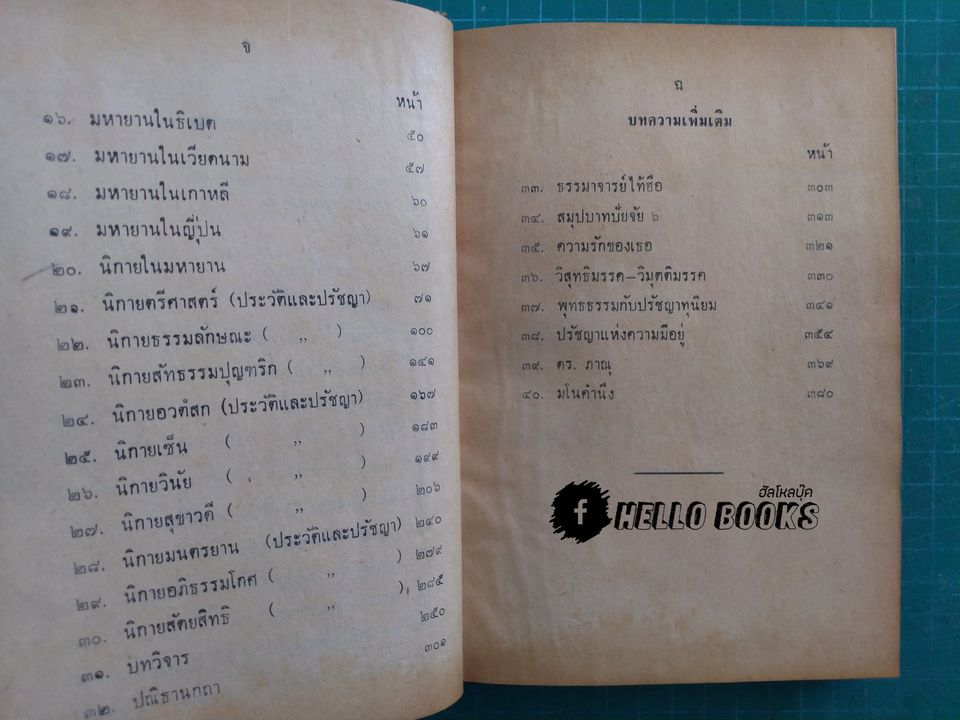 จ
หน้า
๑๖. มหายานในธิเบต ๕๐
๑๗. มหายานในเวียดนาม ๕๗
๑๘. มหายานในเกาหลี ๖๐
๑๙. มหายานในญี่ปุ่น ๖๑
๒๐. นิกายในมหายาน ๖๗
๒๑. นิกายตรีศาสตร์ (ประวัติและปรัชญา) ๗๑
๒๒. นิกายธรรมลักษณะ ( ,, ) ๑๐๐
๒๓. นิกายสัทธรรมปุญฑริก ( ,, ) ๑๔๑
๒๔. นิกายอวตํสก (ประวัติและปรัชญา) ๑๖๗
๒๕. นิกายเซ็น ( ,, ) ๑๘๓
๒๖. นิกายวินัย ( ,, ) ๑๙๙
๒๗. นิกายสุขาวดี ( ,, ) ๒๐๖
๒๘. นิกายมนตรยาน (ประวัติและปรัชญา) ๒๔๐
๒๙. นิกายอภิธรรมโกศ ( ,, ) ๒๗๙
๓๐. นิกายสัตยสิทธิ ( ,, ), ๒๘๕
๓๑. บทวิจาร ๒๕๐
๓๒. ปณิธานกถา ๓๐๑
ฉ
บทความเพิ่มเติม
หน้า
๓๓. ธรรมาจารย์ไท้ฮือ ๓๐๓
๓๔. สมุปบาทปัยจัย ๖ ๓๑๓
๓๕. ความรักของเธอ ๓๒๑
๓๖. วิสุทธิมรรค–วิมุตติมรรค ๓๓๐
๓๗. พุทธธรรมกับปรัชญาทุนิยม ๓๔๑
๓๘. ปรัชญาแห่งความมีอยู่ ๓๕๔
๓๙. ดร. ภาณุ ๓๖๙
๔๐. มโนคำนึง ๓๘๐
ฮัลโหลบุ๊ค
f HELLO BOOKS